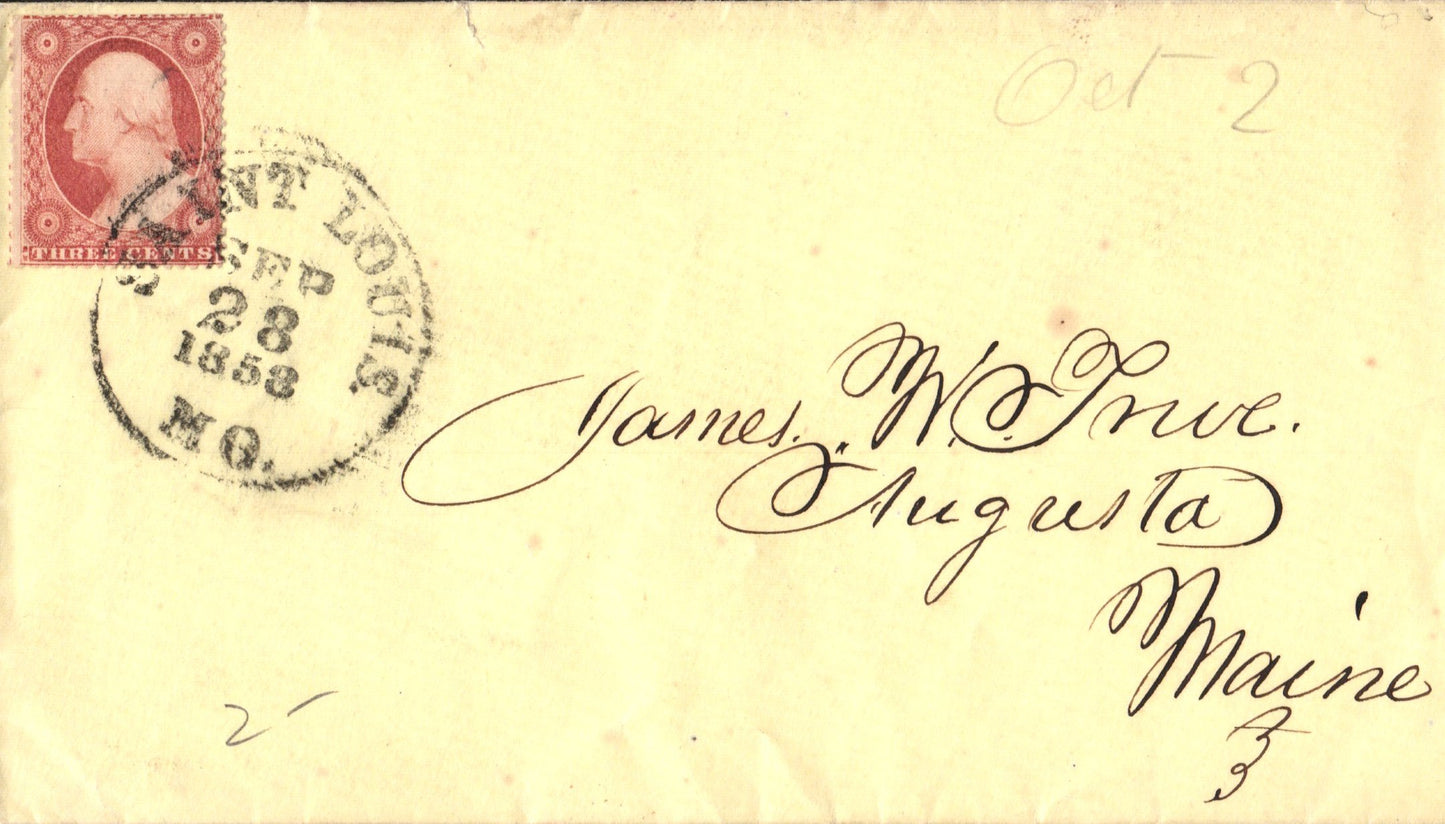 Oct 2
THREE CENTS
SAINT LOUIS
SEP
28
1858
MO.
James. W. True.
Augusta
Maine
2